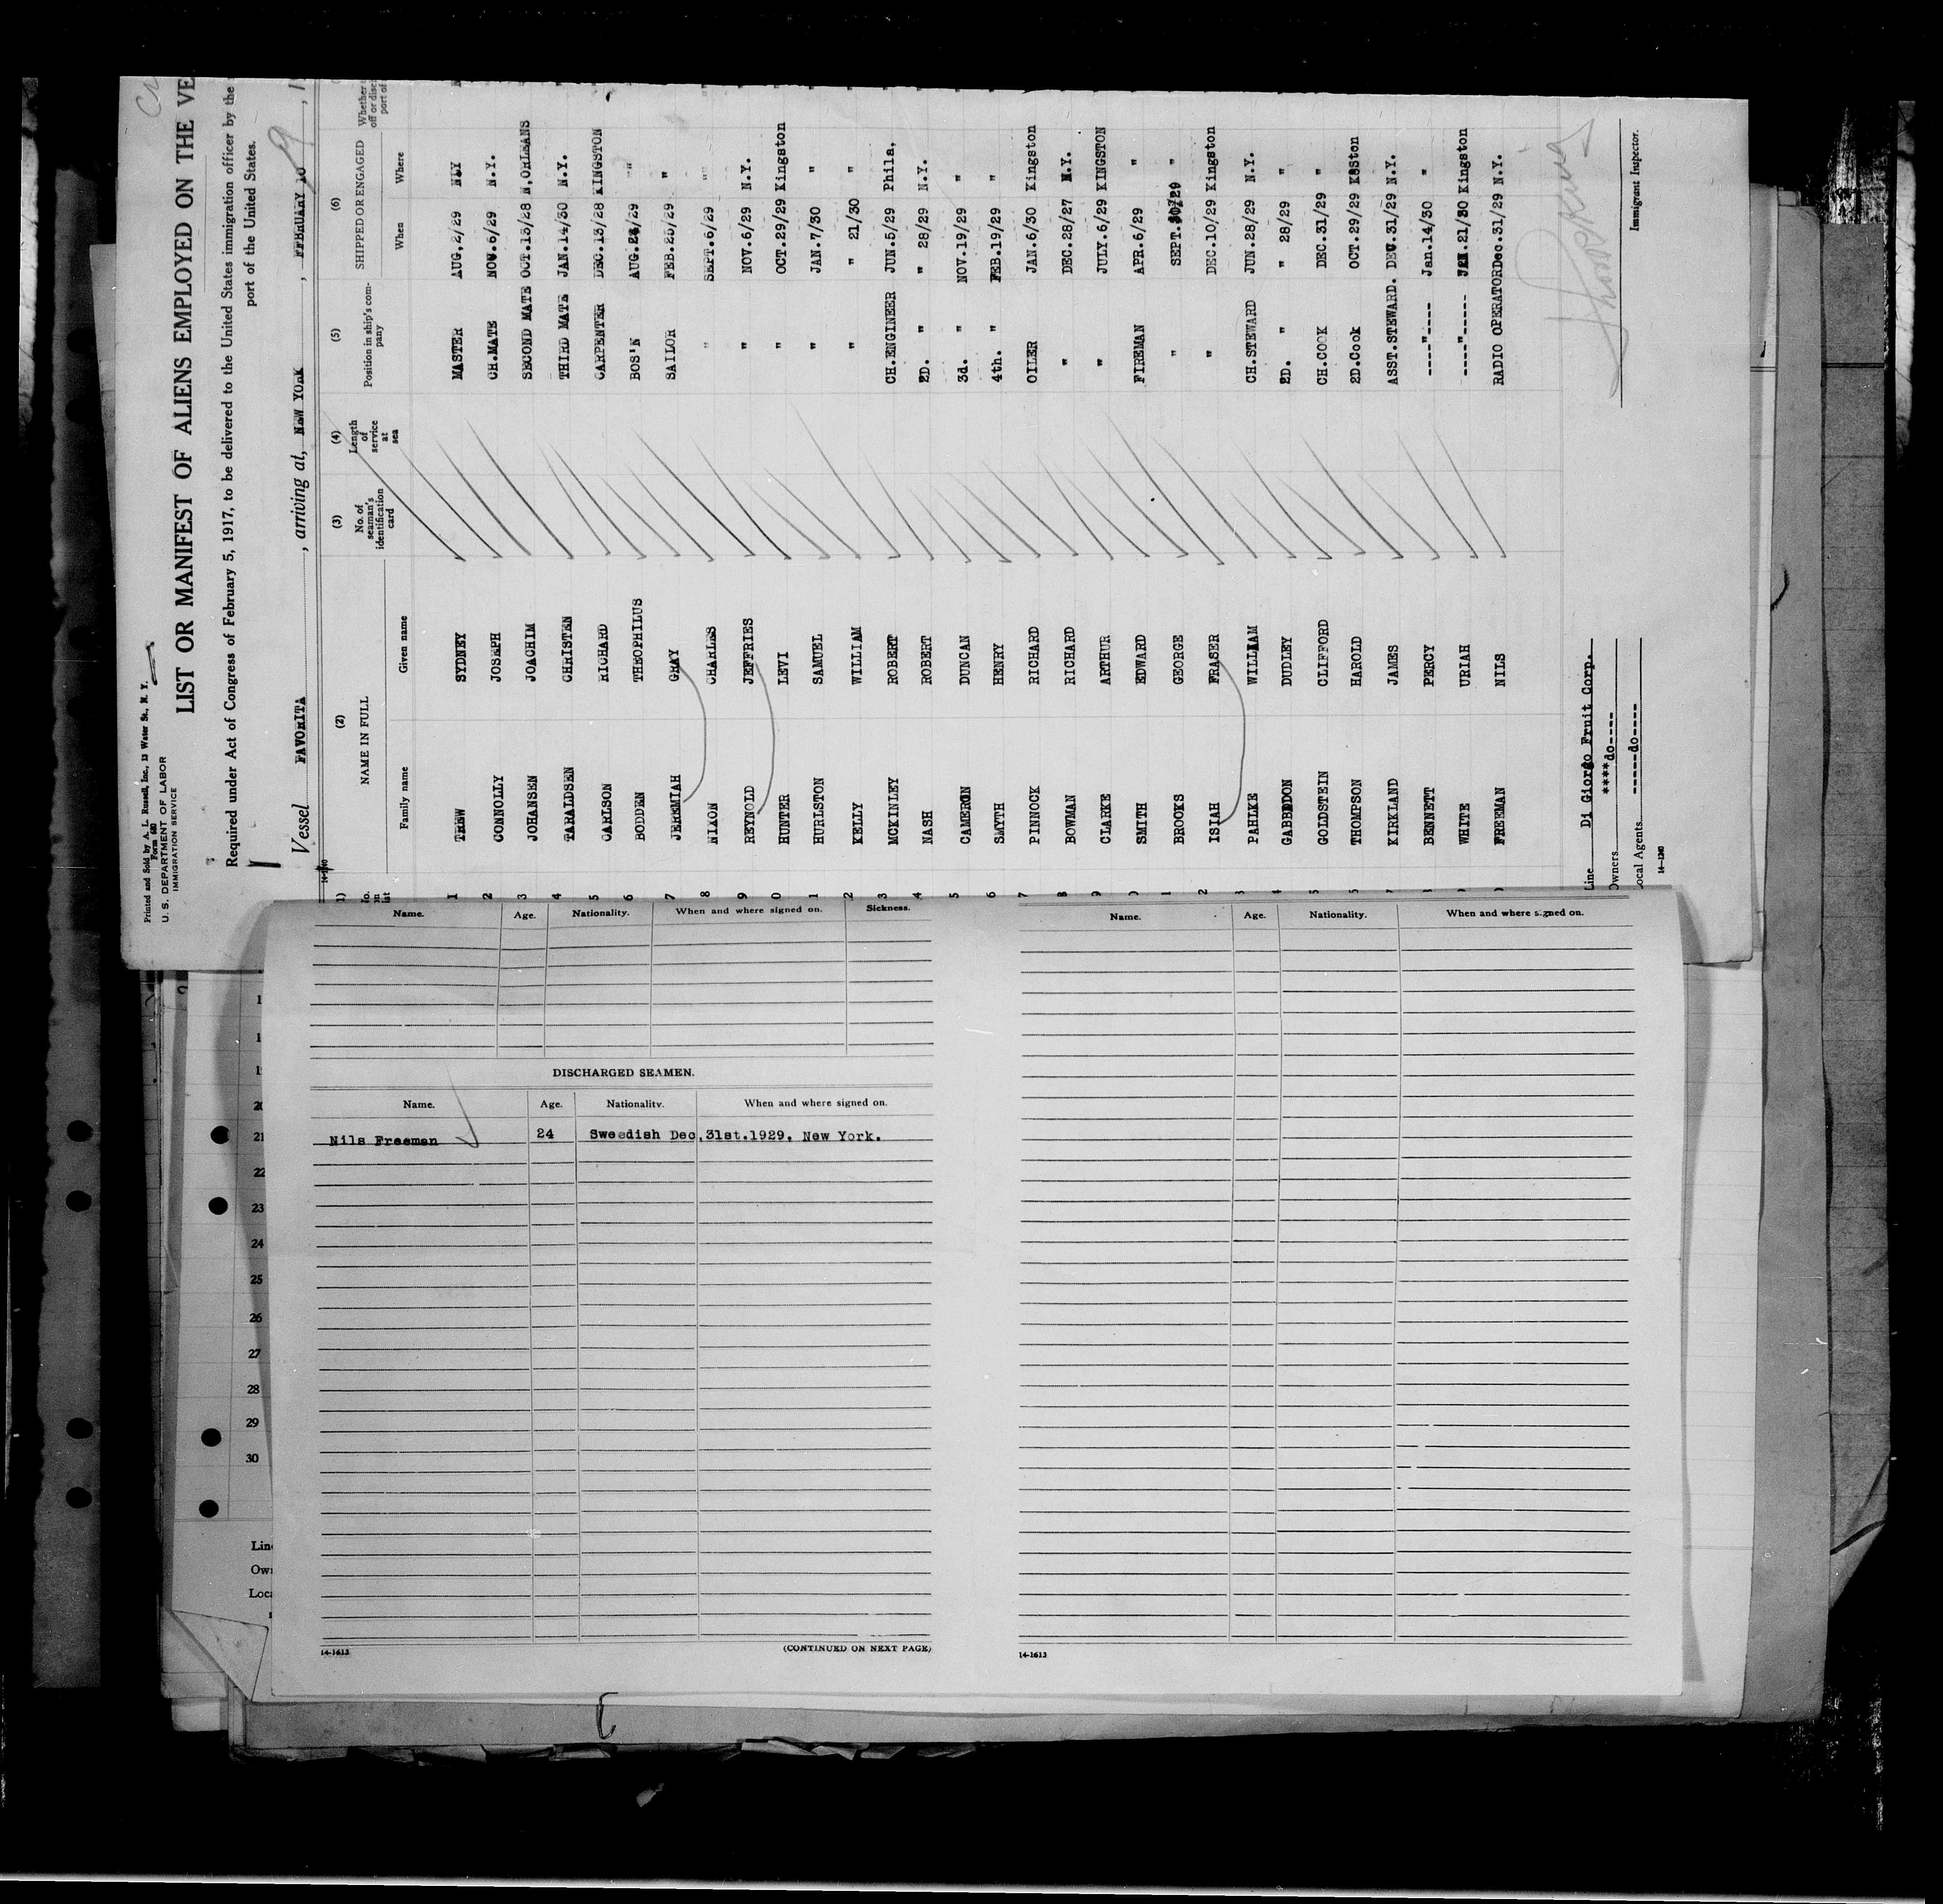 Printed and Sold by A. L. Russell, Inc., 13 Water St., N. Y.
Form 680
U. S. DEPARTMENT OF LABOR
IMMIGRATION SERVICE
LIST OR MANIFEST OF ALIENS EMPLOYED ON THE VE
Required under Act of Congress of February 5, 1917, to be delivered to the United States immigration officer by the
port of the United States.
Vessel FAVORITA, arriving at, NEW YORK, FEBRUARY 9, 1
14-1240
(2) (3) (4) (5) (6)
NAME IN FULL No. of seaman's identification card Length of service at sea Position in ship's company SHIPPED OR ENGAGED Whether
off or disc
port of
Family name Given name When Where
1 TREW SYDNEY MASTER AUG.2/29
2 CONNOLLY JOSEPH CH.MATE NOV.6/29 N.Y.
3 JOHANSEN JOACHIM SECOND MATE OCT.15/28 N,ORLEANS
4 TARALDSEN CHRISTEN THIRD MATE JAN.14/30 N.Y.
5 CARLSON RICHARD CARPENTER DEC.13/28 KINGSTON
6 BODDEN THEOPHILUS BOS'N AUG. /29 "
7 JEREMIAH GRAY SAILOR FEB.25/29 "
8 NIXON CHARLES " SEPT.6/29 "
9 REYNOLD JEFFRIES " NOV.6/29 N.Y.
0 HUNTER LEVI " OCT.29/29 Kingston
1 HURLSTON SAMUEL " JAN.7/30 "
2 KELLY WILLIAM " " 21/30 "
3 MCKINLEY ROBERT CH.ENGINEER JUN.5/29 Phila,
4 NASH ROBERT 2D. " " 28/29 N.Y.
5 CAMERON DUNCAN 3d. " NOV.19/29 "
6 SMYTH HENRY 4th. " FEB.19/29 "
7 PINNOCK RICHARD OILER JAN.6/30 Kingston
8 BOWMAN RICHARD " DEC.28/27 N.Y.
9 CLARKE ARTHUR " JULY.6/29 KINGSTON
0 SMITH EDWARD FIREMAN APR.6/29 "
1 BROOKS GEORGE " SEPT. /29 "
2 ISIAH FRASER " DEC.10/29 Kingston
3 PAHLKE WILLIAM CH.STEWARD JUN.28/29 N.Y.
4 GABBDDON DUDLEY 2D. " " 28/29 "
5 GOLDSTEIN CLIFFORD CH.COOK DEC.31/29 "
6 THOMPSON HAROLD 2D.Cook OCT.29/29
7 KIRKLAND JAMES ASST.STEWARD. DEC.31/29 N.Y.
8 BENNETT PERCY ----"---- Jan.14/30 "
9 WHITE URIAH ----"----- JAN.21/30 Kingston
FREEMAN NILS RADIO OPERATOR Dec.31/29 N.Y.
Line Di Giorgo Fruit Corp.
Owners ****do----
Local Agents -----do----
14-1240
Immigrant Inspector.
Name. Age. Nationality. When and where signed on. Sickness.
DISCHARGED SEAMEN.
Name. Age. Nationality. When and where signed on.
Nils Freeman 24 Swedish Dec.31st.1929. New York.
14-1613
(CONTINUED ON NEXT PAGE)
Name. Age. Nationality. When and where signed on.
14-1613
20
21
22
23
24
25
26
27
28
29
30
Line
Own
Loca